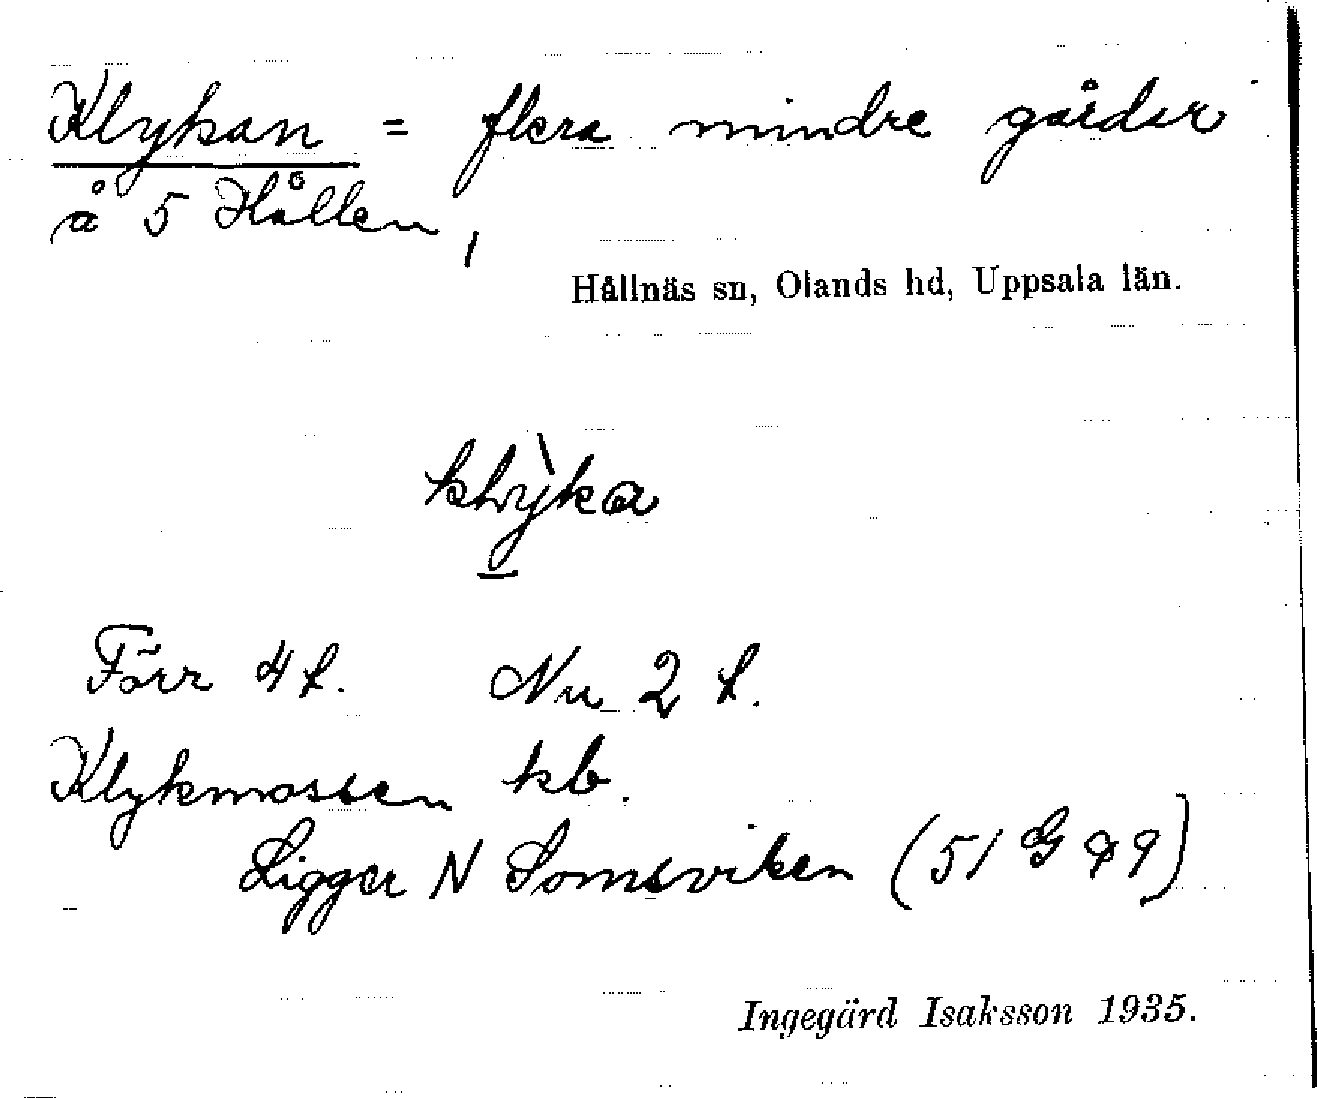 Klykan = flera mindre gårdar
å 5 Hållen,
Hållnäs sn, Olands hd, Uppsala län.
klỳka
Förr 4 f. Nu 2 f.
Klykmossen kb.
Ligger N Somsviken (51 G g 9)
Ingegärd Isaksson 1935.